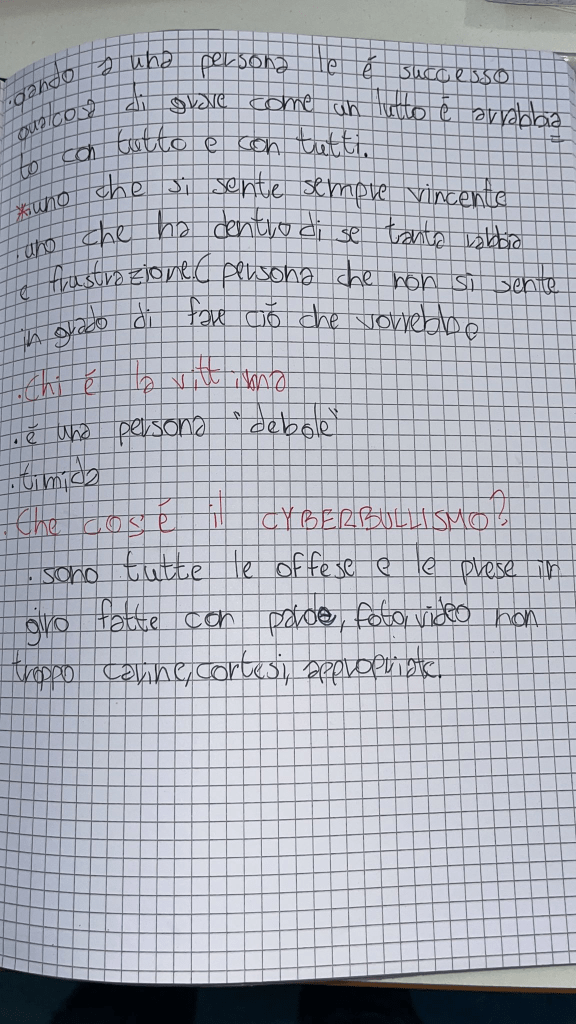 .qando a una persona le é successo
qualcosa di grave come un lutto é arrabbia=
to con tutto e con tutti.
*uno che si sente sempre vincente
.uno che ha dentro di se tanta rabbia
e frustrazione( persona che non si sente
in grado di fare ció che vorrebbe
.Chi é la vittima
.é una persona "debole"
.timida
.Che cos é il CYBERBULLISMO?
.sono tutte le offese e le prese in
giro fatte con parole, foto, video non
troppo carine, cortesi, appropriate.